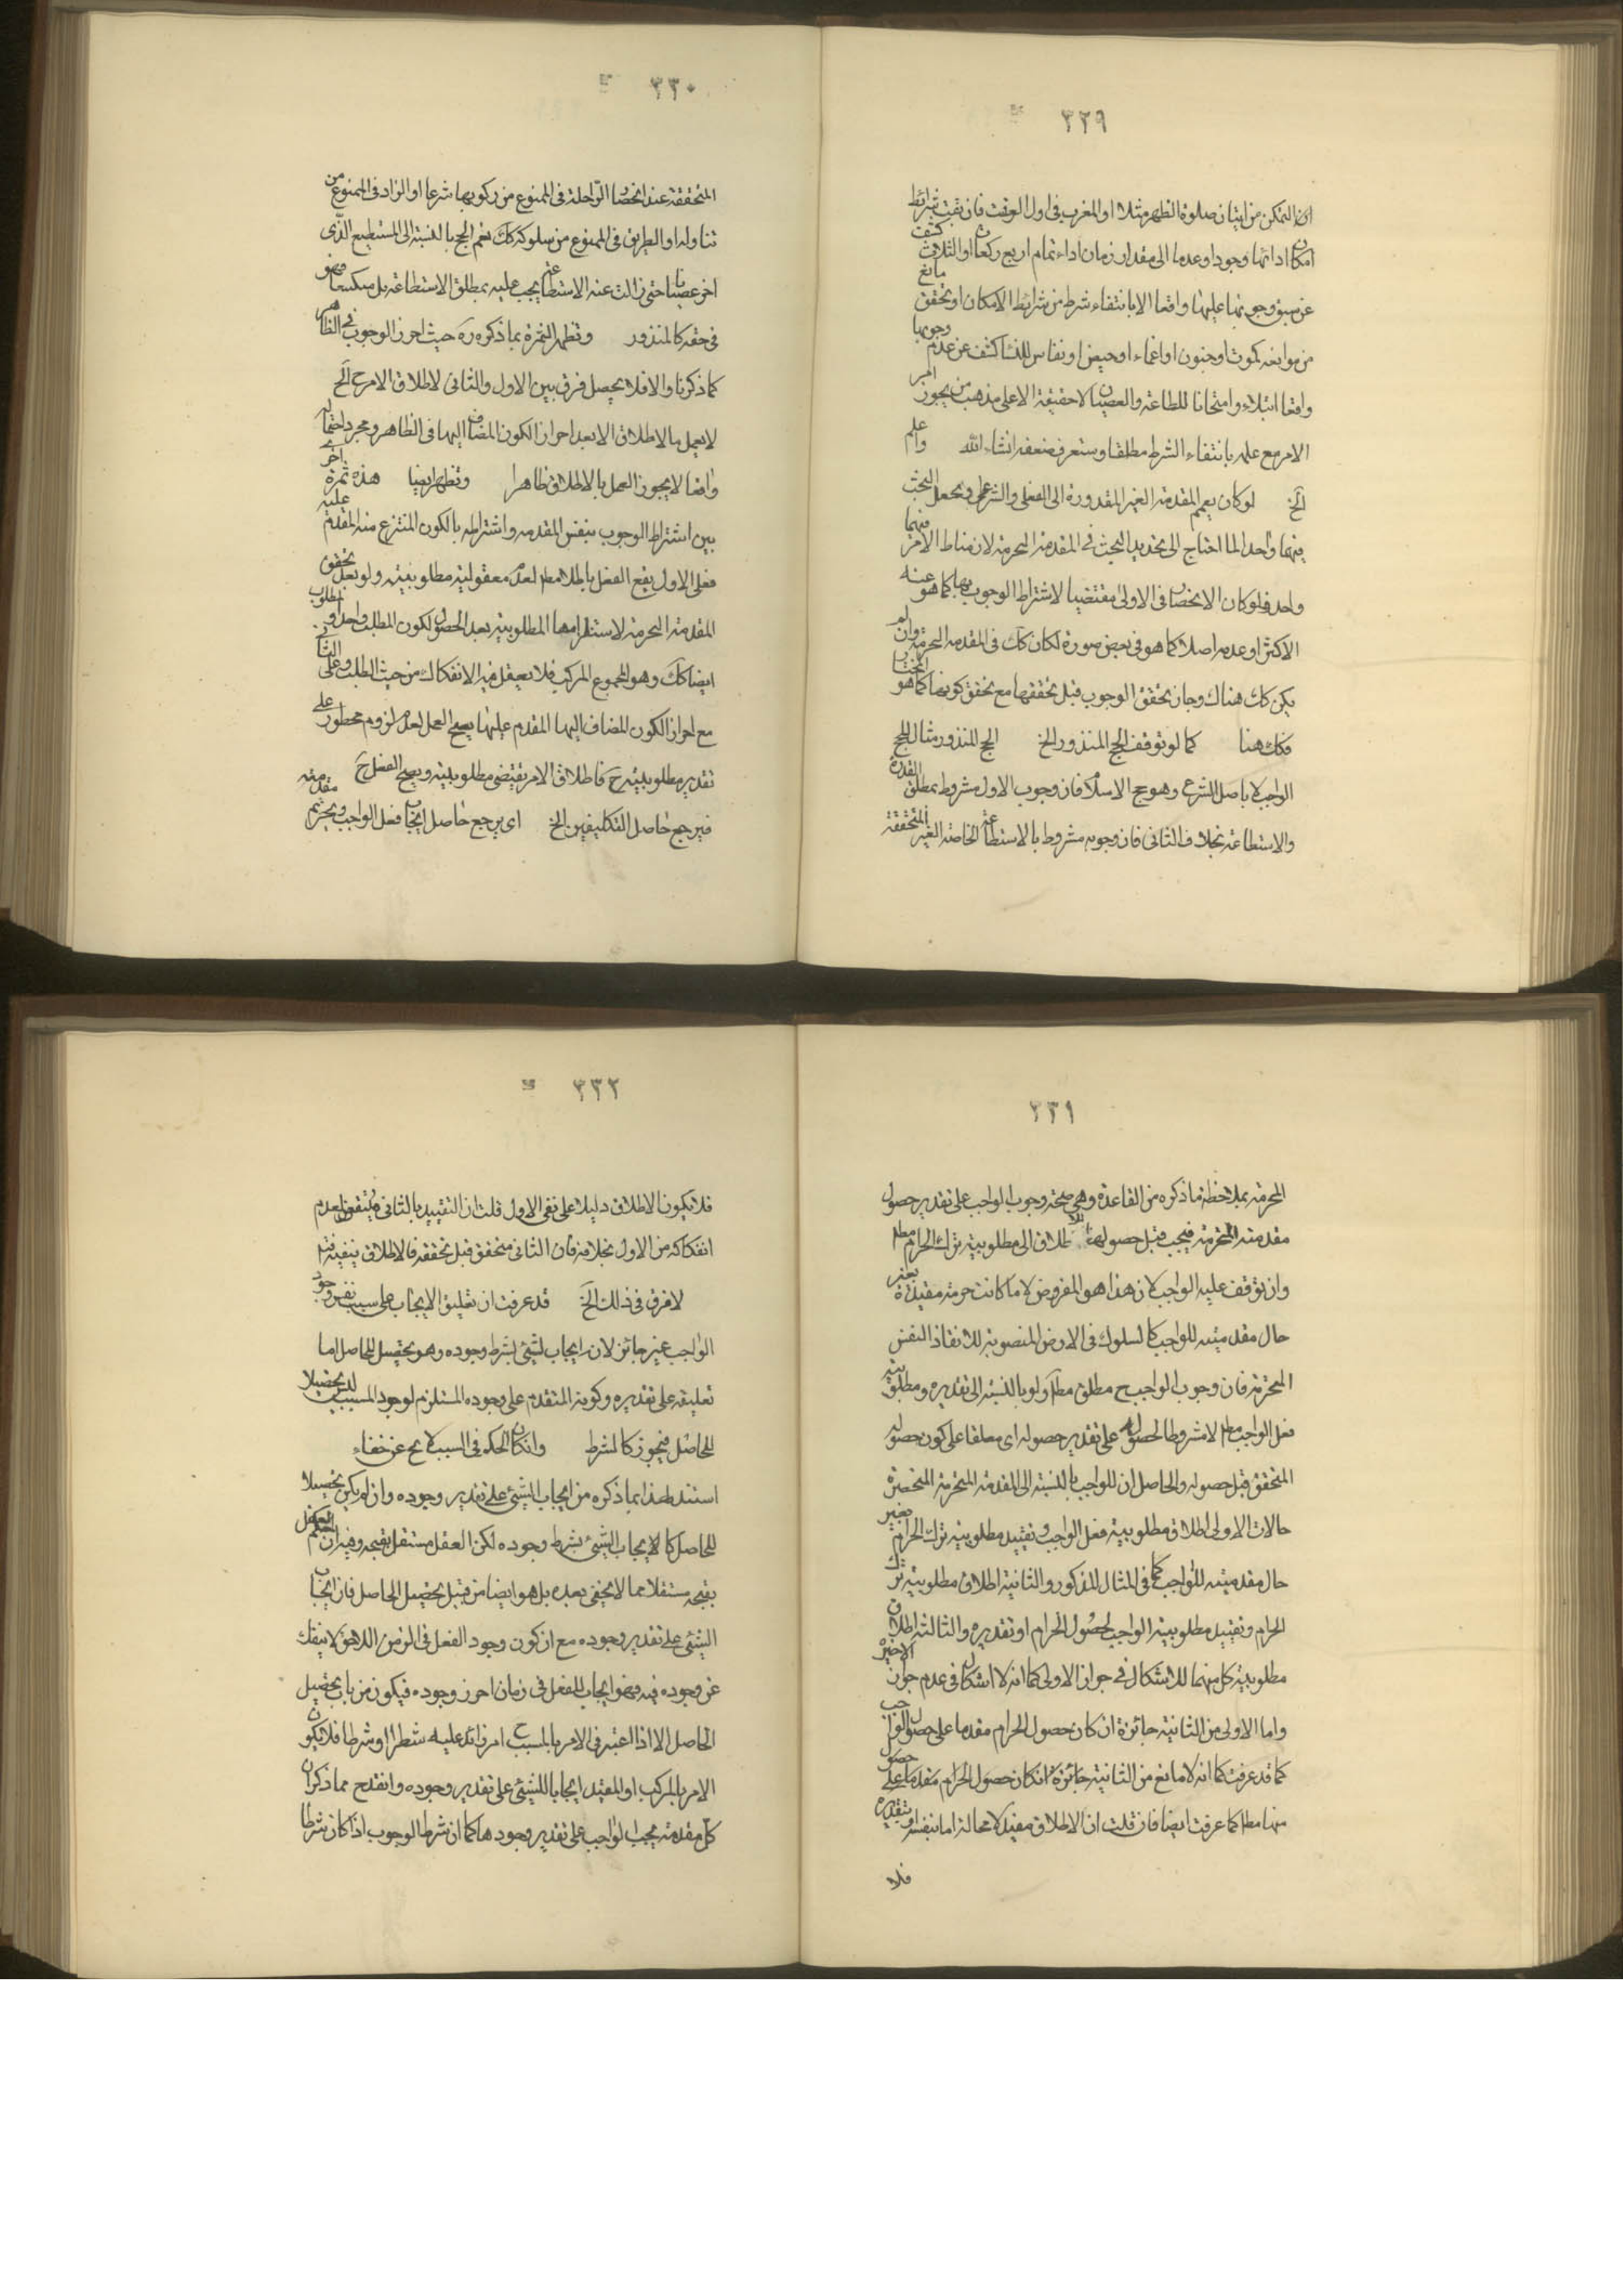 ٣٢٩
ان التمكن من اتيان صلوة الظهر مثلا او المغرب فى اول الوقت فان بقيت شرائط
امكان ادائها وجودا وعدما الى مقدار زمان اداء تمام اربع ركعات او الثلاث كشف
عن سبق وجوبها عليها واقعا الا بانتفاء شرط من شرائط الامكان او تحقق مانع
من موانعه كموت او جنون او اغماء او حيض او نفاس للنساء كشف عن عدم وجوبها
واقعا ابتلاء وامتحانا للطاعة والعصيان لا حقيقة الا على مذهب من يجوز امر
الامر مع علمه بانتفاء الشرط مطلقا وستعرف ضعفه انشاء الله
الخ لو كان يعم المقدمة الغير المقدورة الى العقلى والشرعى ويجعل البحث
فيهما واحدا لما احتاج الى تجديد البحث فى المقدمة المحرمة لان مناط الامر فيهما
واحد فلو كان الانحصار فى الاولى مقتضيا لاشتراط الوجوب بها كما هو عند
الاكثر او عدمه اصلا كما هو فى بعض صوره لكان كك فى المقدمة المحرمة وان لم
يكن كك هناك وجاز تحقق الوجوب قبل تحققها مع تحقق كونها كما هو المختار
فكك هنا كما لو توقف الحج المنذور الخ الحج المنذور مثال للحج
الواجب لا باصل الشرع وهو حج الاسلام فان وجوب الاول مشروط بمطلق القدرة
والاستطاعة بخلاف الثانى فان وجوبه مشروط بالاستطاعة الخاصة الغير المتحققة
٣٣٠
المتحققة عند انحصار الراحلة فى الممنوع من ركوبها شرعا او الزاد فى الممنوع من
تناوله او الطريق فى الممنوع من سلوكه كك نعم الحج بالنسبة الى المستطيع الذى
اخر عصيانا حتى زالت عنه الاستطاعة يجب عليه بمطلق الاستطاعة بل متسكعا فهو
فى حقه كالمنذور وتظهر الثمرة بما ذكره ره حيث احرز الوجوب فى الظاهر
كما ذكرنا والا فلا يحصل فرق بين الاول والثانى لاطلاق الامر ح الخ
لا يعمل بالاطلاق الا بعد احراز الكون المضاف اليها فى الظاهر ومجرد احتماله
واقعا لا يجوز العمل بالاطلاق ظاهرا وتظهر ايضا هذه ثمرة اخرى
بين اشتراط الوجوب بنفس المقدمة واشتراطه بالكون المنتزع منها المقدم عليه
فعلى الاول يقع الفعل باطلا مطلقا لعدم معقولية مطلوبيته ولو بعد تحقق
المقدمة المحرمة لاستلزامها المطلوبية بعد الحصول لكون المطلب واحدا والمطلوب
ايضا كك وهو المجموع المركب فلا يعقل فيه الانفكاك من حيث الطلب وعلى الثانى
مع احراز الكون المضاف اليها المقدم عليها يصح العمل لعدم لزوم محظور على
تقدير مطلوبيته ح فاطلاق الامر يقتضى مطلوبيته ويصح الفعل ح
فيرجع حاصل التكليفين الخ اى يرجع حاصل ايجاب فعل الواجب وتحريم مقدمته
٣٣١
المحرمة بملاحظة ما ذكره من القاعدة وهى صحة وجوب الواجب على تقدير حصول
مقدمته المحرمة فيجب قبل حصولها اطلاق الى مطلوبية ترك الحرام مطلقا
وان توقف عليه الواجب لان هذا هو المفروض لا ما كانت حرمته مقيدة بغير
حال مقدميته للواجب كالسلوك فى الارض المغصوبة للانقاذ النفس
المحترمة فان وجوب الواجب ح مطلق مطلقا ولو بالنسبة الى تقديره ومطلوبية
فعل الواجب مطلقا لا مشروطا لحصوله على تقدير حصوله اى معلقا على كون حصوله
المتحقق قبل حصوله والحاصل ان للواجب بالنسبة الى المقدمة المحرمة المنحصرة
حالات الاولى اطلاق مطلوبية فعل الواجب وتقييد مطلوبية ترك الحرام بغير
حال مقدميته للواجب كما فى المثال المذكور والثانية اطلاق مطلوبية ترك
الحرام وتقييد مطلوبية الواجب لحصول الحرام او تقديره والثالثة اطلاق
مطلوبية كل منهما لا اشكال فى جواز الاولى كما انه لا اشكال فى عدم جواز الاخير
واما الاولى من الثانية جائزة ان كان حصول الحرام مقدما على حصول الواجب
كما قد عرفت كما انه لا مانع من الثانية جائزة ان كان حصول الحرام مقدما على حصول
منها مطلقا كما عرفت ايضا فان قلت ان الاطلاق مقيد لا محالة اما بنفسه او بتقديره
فلا
٣٣٢
فلا يكون الاطلاق دليلا على نفى الاول قلت ان التقييد بالثانى متيقن لعدم
انفكاكه من الاول بخلافه فان الثانى متحقق قبل تحققه فالاطلاق ينفيه
لا فرق فى ذلك الخ قد عرفت ان تعليق الايجاب على سبب نفس وجود
الواجب غير جائز لانه ايجاب لشئ بشرط وجوده وهو تحصيل للحاصل اما
تعليقه على تقديره وكونه المتقدم على وجوده المستلزم لوجود المسبب ليس تحصيلا
للحاصل فيجوز كالشرط وانكان الحكم فى السبب لا يخ عن خفاء
استند لهذا بما ذكره من ايجاب الشئ على تقدير وجوده وان لم يكن تحصيلا
للحاصل كالايجاب الشئ بشرط وجوده لكن العقل مستقل بقبحه وفيه ان حكم العقل
بقبحه مستقلا مما لا يخفى بعده بل هو ايضا من قبيل تحصيل الحاصل فان ايجاب
الشئ على تقدير وجوده مع ان كون وجود الفعل فى الزمن اللاحق لا ينفك
عن وجوده فيه فهو ايجاب للفعل فى زمان احرز وجوده فيكون من باب تحصيل
الحاصل الا اذا اعتبر فى الامر بالمسبب ح امر زائد عليه شطرا او شرطا فلا يكون
الامر بالمركب او المقيد ايجابا للشئ على تقدير وجوده وانقدح مما ذكر ان
كل مقدمة يجب الواجب على تقدير وجودها كما ان شرط الوجوب اذا كان شرطا